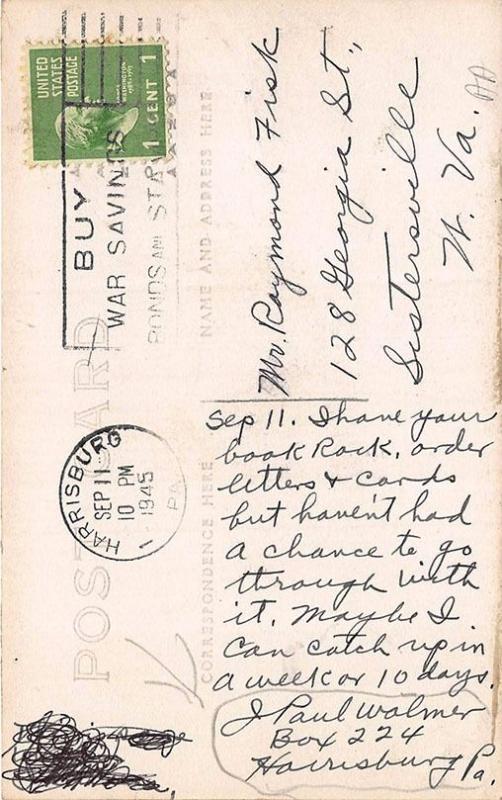 UNITED
STATES
POSTAGE
WASHINGTON
1 CENT 1
BUY
WAR SAVINGS
BONDS AND STA
POST CARD
NAME AND ADDRESS HERE
CORRESPONDENCE HERE
HARRISBURG
SEP 11
10 PM
1945
PA.
1
Mr. Raymond Fisk
128 Georgia St.,
Sistersville
W. Va.
Sep 11. I have your
book Rock, order
letters & cards
but haven't had
a chance to go
through with
it. Maybe I
can catch up in
a week or 10 days.
J Paul Wolmer
Box 224
Harrisburg Pa.